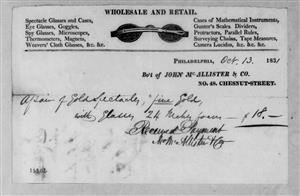 WHOLESALE AND RETAIL.
Spectacle Glasses and Cases,
Eye Glasses, Goggles,
Spy Glasses, Microscopes,
Thermometers, Magnets,
Weavers' Cloth Glasses, &c. &c.
Cases of Mathematical Instruments,
Gunter's Scales, Dividers,
Protractors, Parallel Rules,
Surveying Chains, Tape Measures,
Camera Lucidas, &c. &c.
PHILADELPHIA, Oct. 13. 183
Bot of JOHN McALLISTER & CO.
NO. 48, CHESNUT-STREET.
A pair of Gold Spectacles, fine Gold,
with Glasses 24 Inches focus — $18.—
Received Payment
Jno McAllister & Co